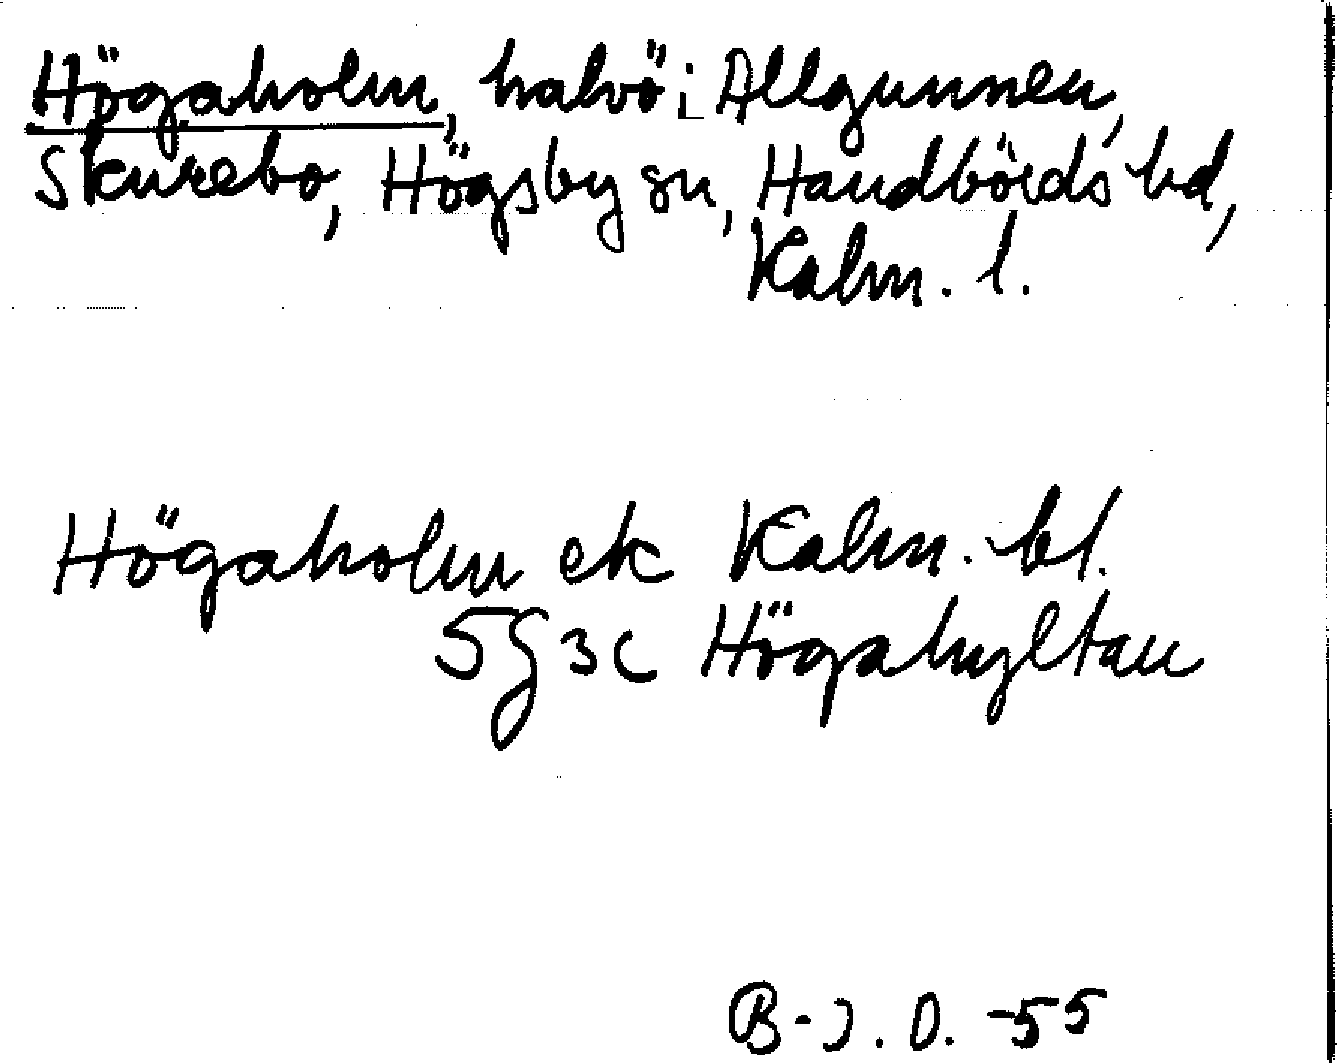 Högaholm, halvö i Allgunnen,
Skurebo, Högsby sn, Handbörds hd,
Kalm. l.
Högaholm ek Kalm. bl.
5g 3c Högahyltan
B-J. O. -55